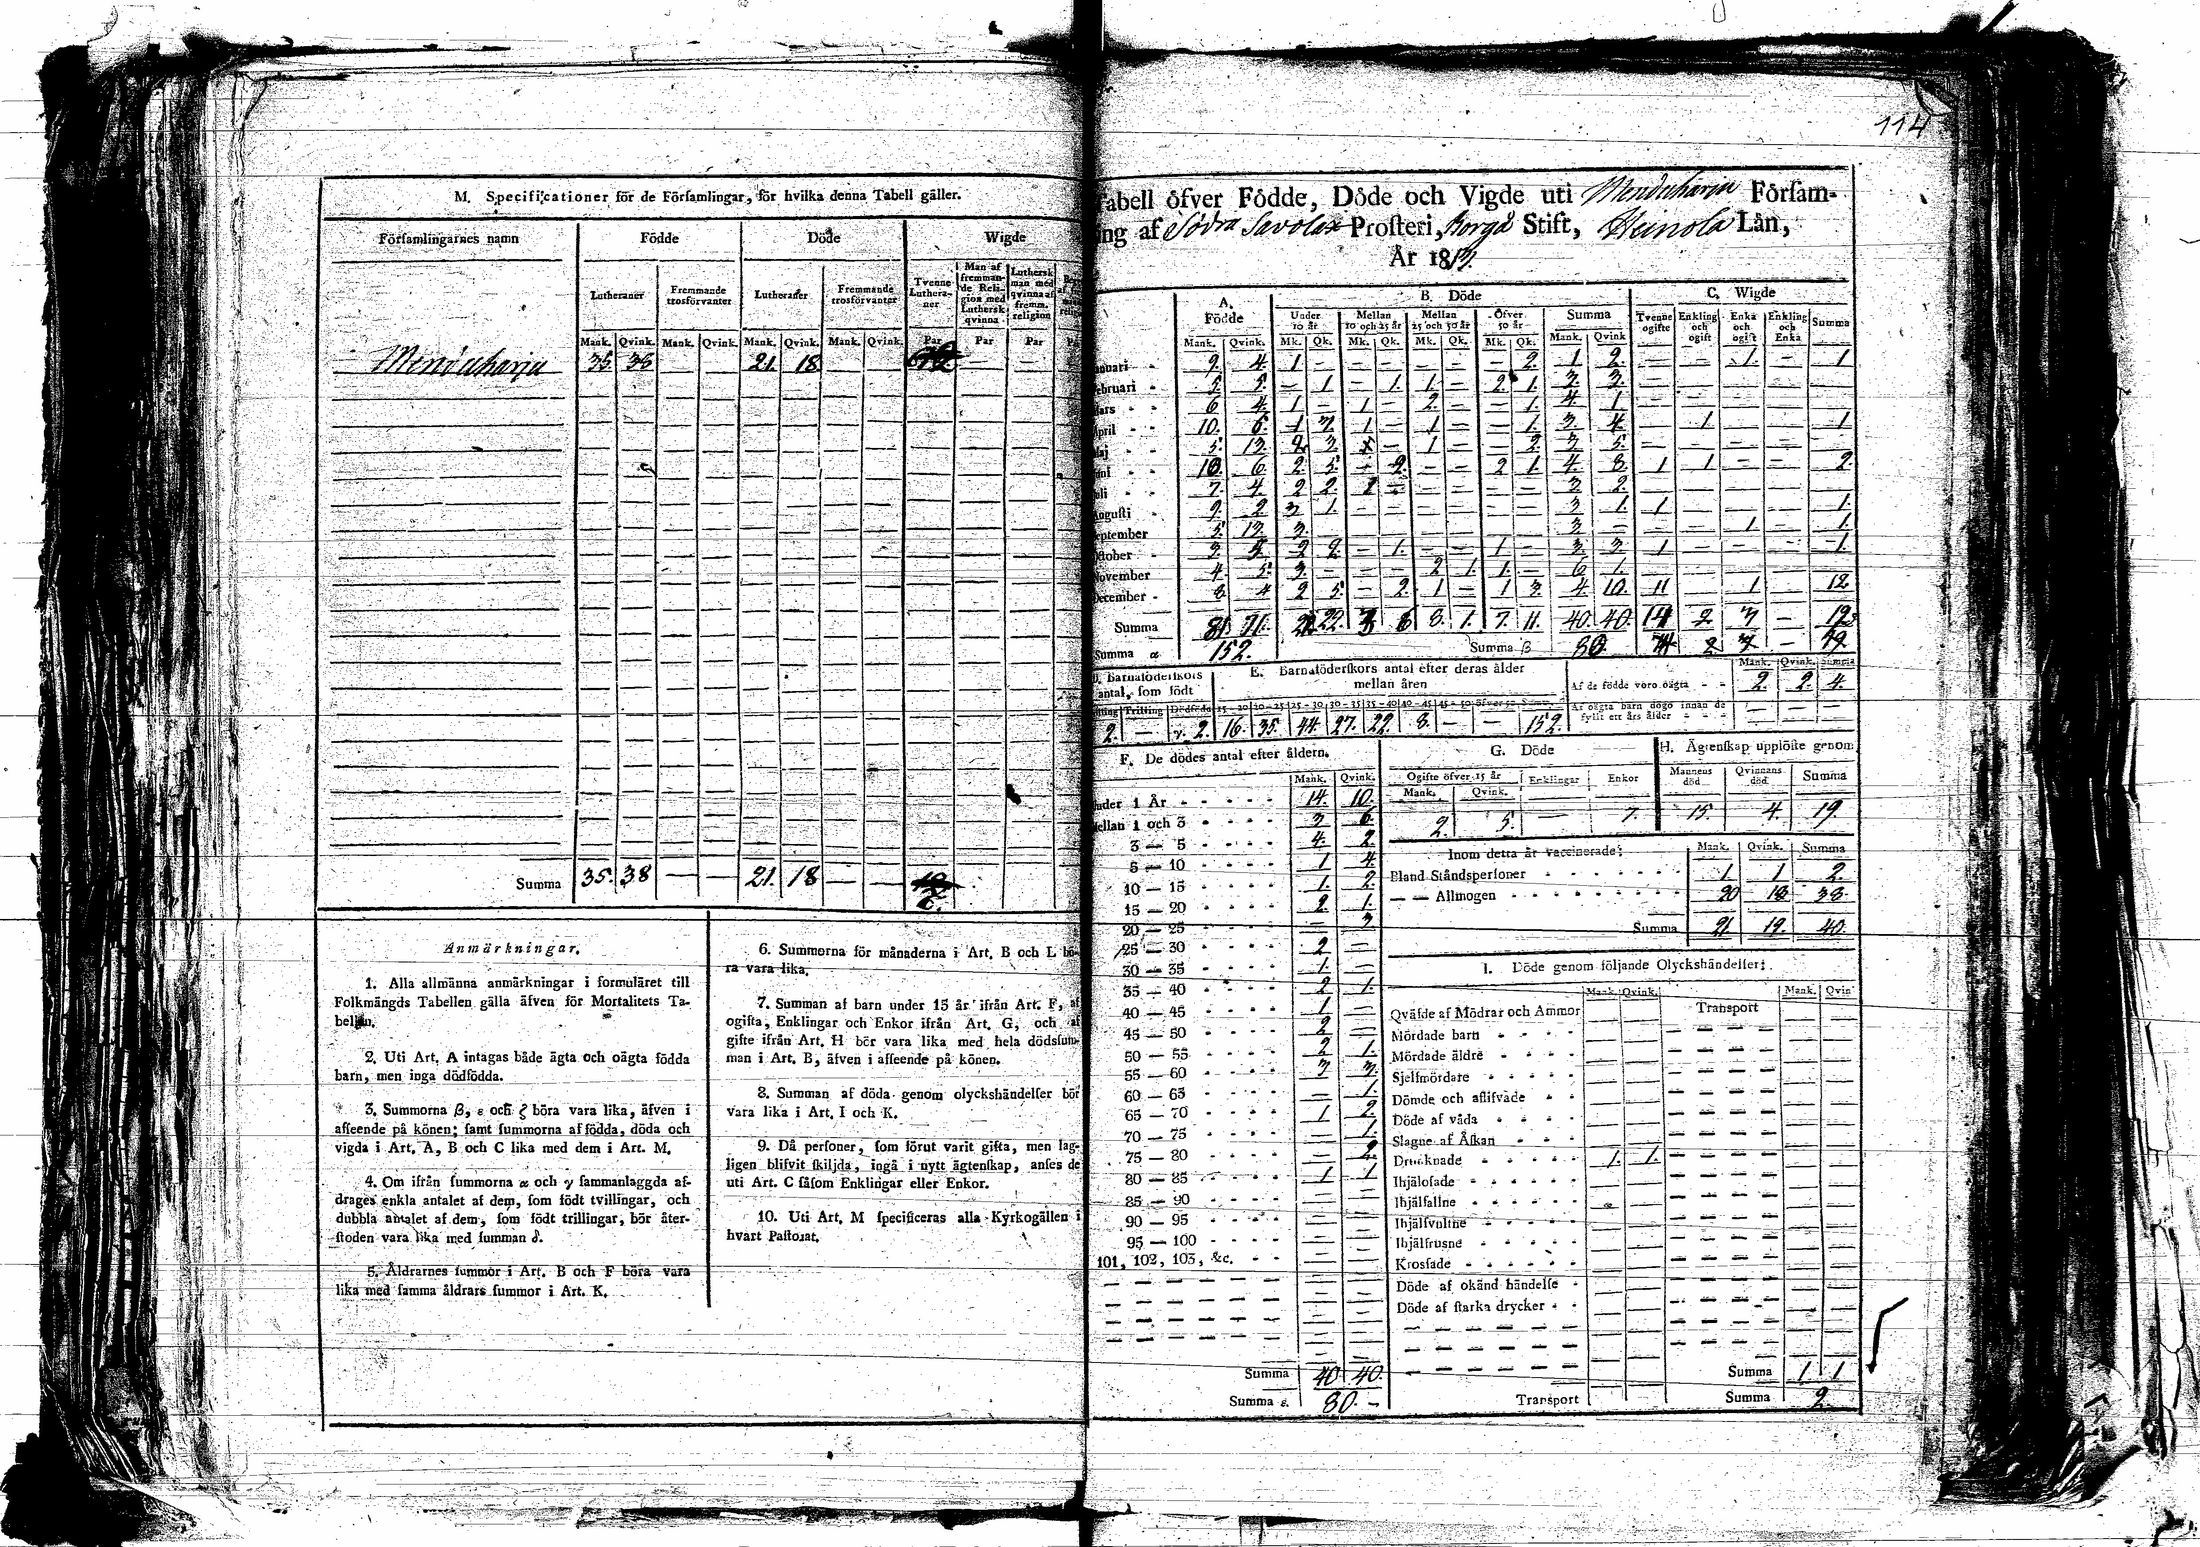 114
M. Specificationer för de Församlingar, för hvilka denna Tabell gäller.
Församlingarnes namn Födde Döde Wigde
Lutheraner Fremmande trosförvanter Lutheraner Fremmande trosförvanter Tvenne Lutheraner Man af fremmande Religion med Luthersk qvinna Luthersk man med qvinna af fremm. religion
Mank. Qvink. Mank. Qvink. Mank. Qvink. Mank. Qvink. Par Par Par
Mänduharju 35. 38 21. 18
Summa 35. 38 — — 21. 18 — —
Anmärkningar.
1. Alla allmänna anmärkningar i formuläret till
Folkmängds Tabellen gälla äfven för Mortalitets Ta-
bellen.
2. Uti Art. A intagas både ägta och oägta födda
barn, men inga dödfödda.
3. Summorna β, ε och ζ böra vara lika, äfven i
afseende på könen; samt summorna af födda, döda och
vigda i Art. A, B och C lika med dem i Art. M.
4. Om ifrån summorna α och γ sammanlagda af-
drages enkla antalet af dem, som födt tvillingar, och
dubbla antalet af dem, som födt trillingar, bör åter-
stoden vara lika med summan δ.
5. Åldrarnes summor i Art. B och F böra vara
lika med samma åldrars summor i Art. K.
6. Summorna för månaderna i Art. B och L bö-
ra vara lika.
7. Summan af barn under 15 år ifrån Art. F, af
ogifta, Enklingar och Enkor ifrån Art. G, och af
gifte ifrån Art. H bör vara lika med hela dödssum-
man i Art. B, äfven i afseende på könen.
8. Summan af döda genom olyckshändelser bör
vara lika i Art. I och K.
9. Då personer, som förut varit gifta, men lag-
ligen blifvit skiljda, ingå i nytt ägtenskap, anses de
uti Art. C såsom Enklingar eller Enkor.
10. Uti Art. M specificeras alla Kyrkogällen i
hvart Pastorat.
Tabell öfver Födde, Döde och Vigde uti Mänduharju Församl-
ing af Södra Savolax Prosteri, Borgå Stift, Heinola Län,
År 1813.
A. Födde B. Döde C. Wigde
Under 10 år Mellan 10 och 25 år Mellan 25 och 50 år Öfver 50 år Summa Tvenne ogifte Enkling och ogift Enka och ogift Enkling och Enka Summa
Mank. Qvink. Mk. Qk. Mk. Qk. Mk. Qk. Mk. Qk. Mank. Qvink.
Januari 9. 4. 1 — — — — — — 2. 1. 2. — — 1. — 1
Februari 5. 5. — 1 — 1. 1. — 2. 1. 3. 3.
Mars 6 4. 1 — 1 — 2. — — 1. 4. 1
April 10. 6. 1 3. 1 — 1 — — 1. 3. 4. — 1 — — 1
Maj 5. 13. 2 3. — 1 — — 2. 3. 5.
Juni 10. 6. 2. 5. — 2. — — 2 1. 4. 8. 1 1 — — 2.
Juli 7. 4. 2 2. 1 — — — — — 3. 2.
Augusti 9. 2. 3 1. — — — — — — 3 1. 1 1.
September 5. 13. 3. 3. — — — 1 — 1.
October 3. 5. 2 2. — 1. — — 1. — 3. 3. 1 — — — 1.
November 4. 5. 3. — — — 2 1. 1. — 6 1.
December 8 4 2 5. — 2. 1 — 1 3. 4. 10. 11 1 — 12
Summa 81. 71. 22 22. 3 6 8. 1. 7. 11. 40. 40. 14 2 3 — 19
Summa α 152. Summa β 80. 2 3 — 19
D. Barnaföderskors antal, som födt
Trilling Dödfödde
2. — γ. 2.
E. Barnaföderskors antal efter deras ålder
mellan åren
15—20 20—25 25—30 30—35 35—40 40—45 45—50 öfver 50 Summa
16. 35. 44. 27. 22. 8. — — 152.
Mank. Qvink. Summa
Af de födde voro oägta 2. 2. 4.
Af oägta barn dogo innan de
fyllt ett års ålder — — —
F. De dödes antal efter åldern.
Mank. Qvink.
Under 1 År 14. 10.
Mellan 1 och 3 3 6.
3 — 5 4. 2.
5 — 10 1 4.
10 — 15 1. 2.
15 — 20 2. 1.
20 — 25 — 3
25 — 30 2 —
30 — 35 1. —
35 — 40 2 1.
40 — 45 1 —
45 — 50 2 —
50 — 55 2 1.
55 — 60 3 3.
60 — 65 — 1.
65 — 70 1 2.
70 — 75 — 1.
75 — 80 — 2.
80 — 85 1 1
85 — 90 — —
90 — 95 — —
95 — 100 — —
101, 102, 103, &c. — —
Summa 40 40.
Summa ε. 80. —
G. Döde
Ogifte öfver 15 år Enklingar Enkor
Mank. Qvink.
2. 5. — 7.
H. Ägtenskap upplöste genom
Mannens död Qvinnans död Summa
15. 4. 19.
Inom detta år vaccinerade: Mank. Qvink. Summa
Bland Ståndspersoner 1 1 2.
— — Allmogen 20 18 38.
Summa 21 19. 40.
I. Döde genom följande Olyckshändelser:
Mank. Qvink. Mank. Qvin
Qväfde af Mödrar och Ammor Transport
Mördade barn
Mördade äldre
Sjelfmördare
Dömde och aflifvade
Döde af våda
Slagne af Åskan
Drunknade 1. 1.
Ihjälosade
Ihjälfallne
Ihjälsvultne
Ihjälfrusne
Krossade
Döde af okänd händelse
Döde af starka drycker
Summa 1 1
Transport Summa 2.